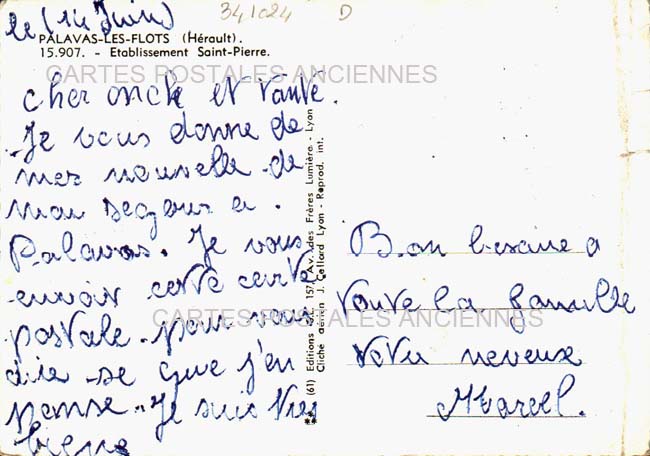 le (14 Juin)
341024
D
PALAVAS-LES-FLOTS (Hérault).
15.907. - Etablissement Saint-Pierre.
CARTES POSTALES ANCIENNES
cher oncle et tante.
Je vous donne de
mes nouvelle de
mon segour a
Palavas. Je vous
envoir cette carte
postale pour vous
dire se que j'en
pense. Je suis tres
biens
** (61) Editions 157, Av. des Frères Lumière - Lyon
Cliché aérien J. Cellard Lyon - Reprod. int.
Bon besaive a
toute la famille
CARTES POSTALES ANCIENNES
votre neveux
Marcel.